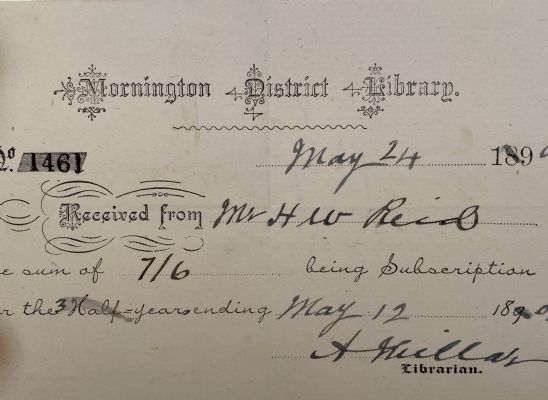 Mornington District Library.
No. 1461 May 24 189
Received from Mr H W Reid
sum of 7/6 being Subscription
the 3 Half-years ending May 12 18
A Millar
Librarian.